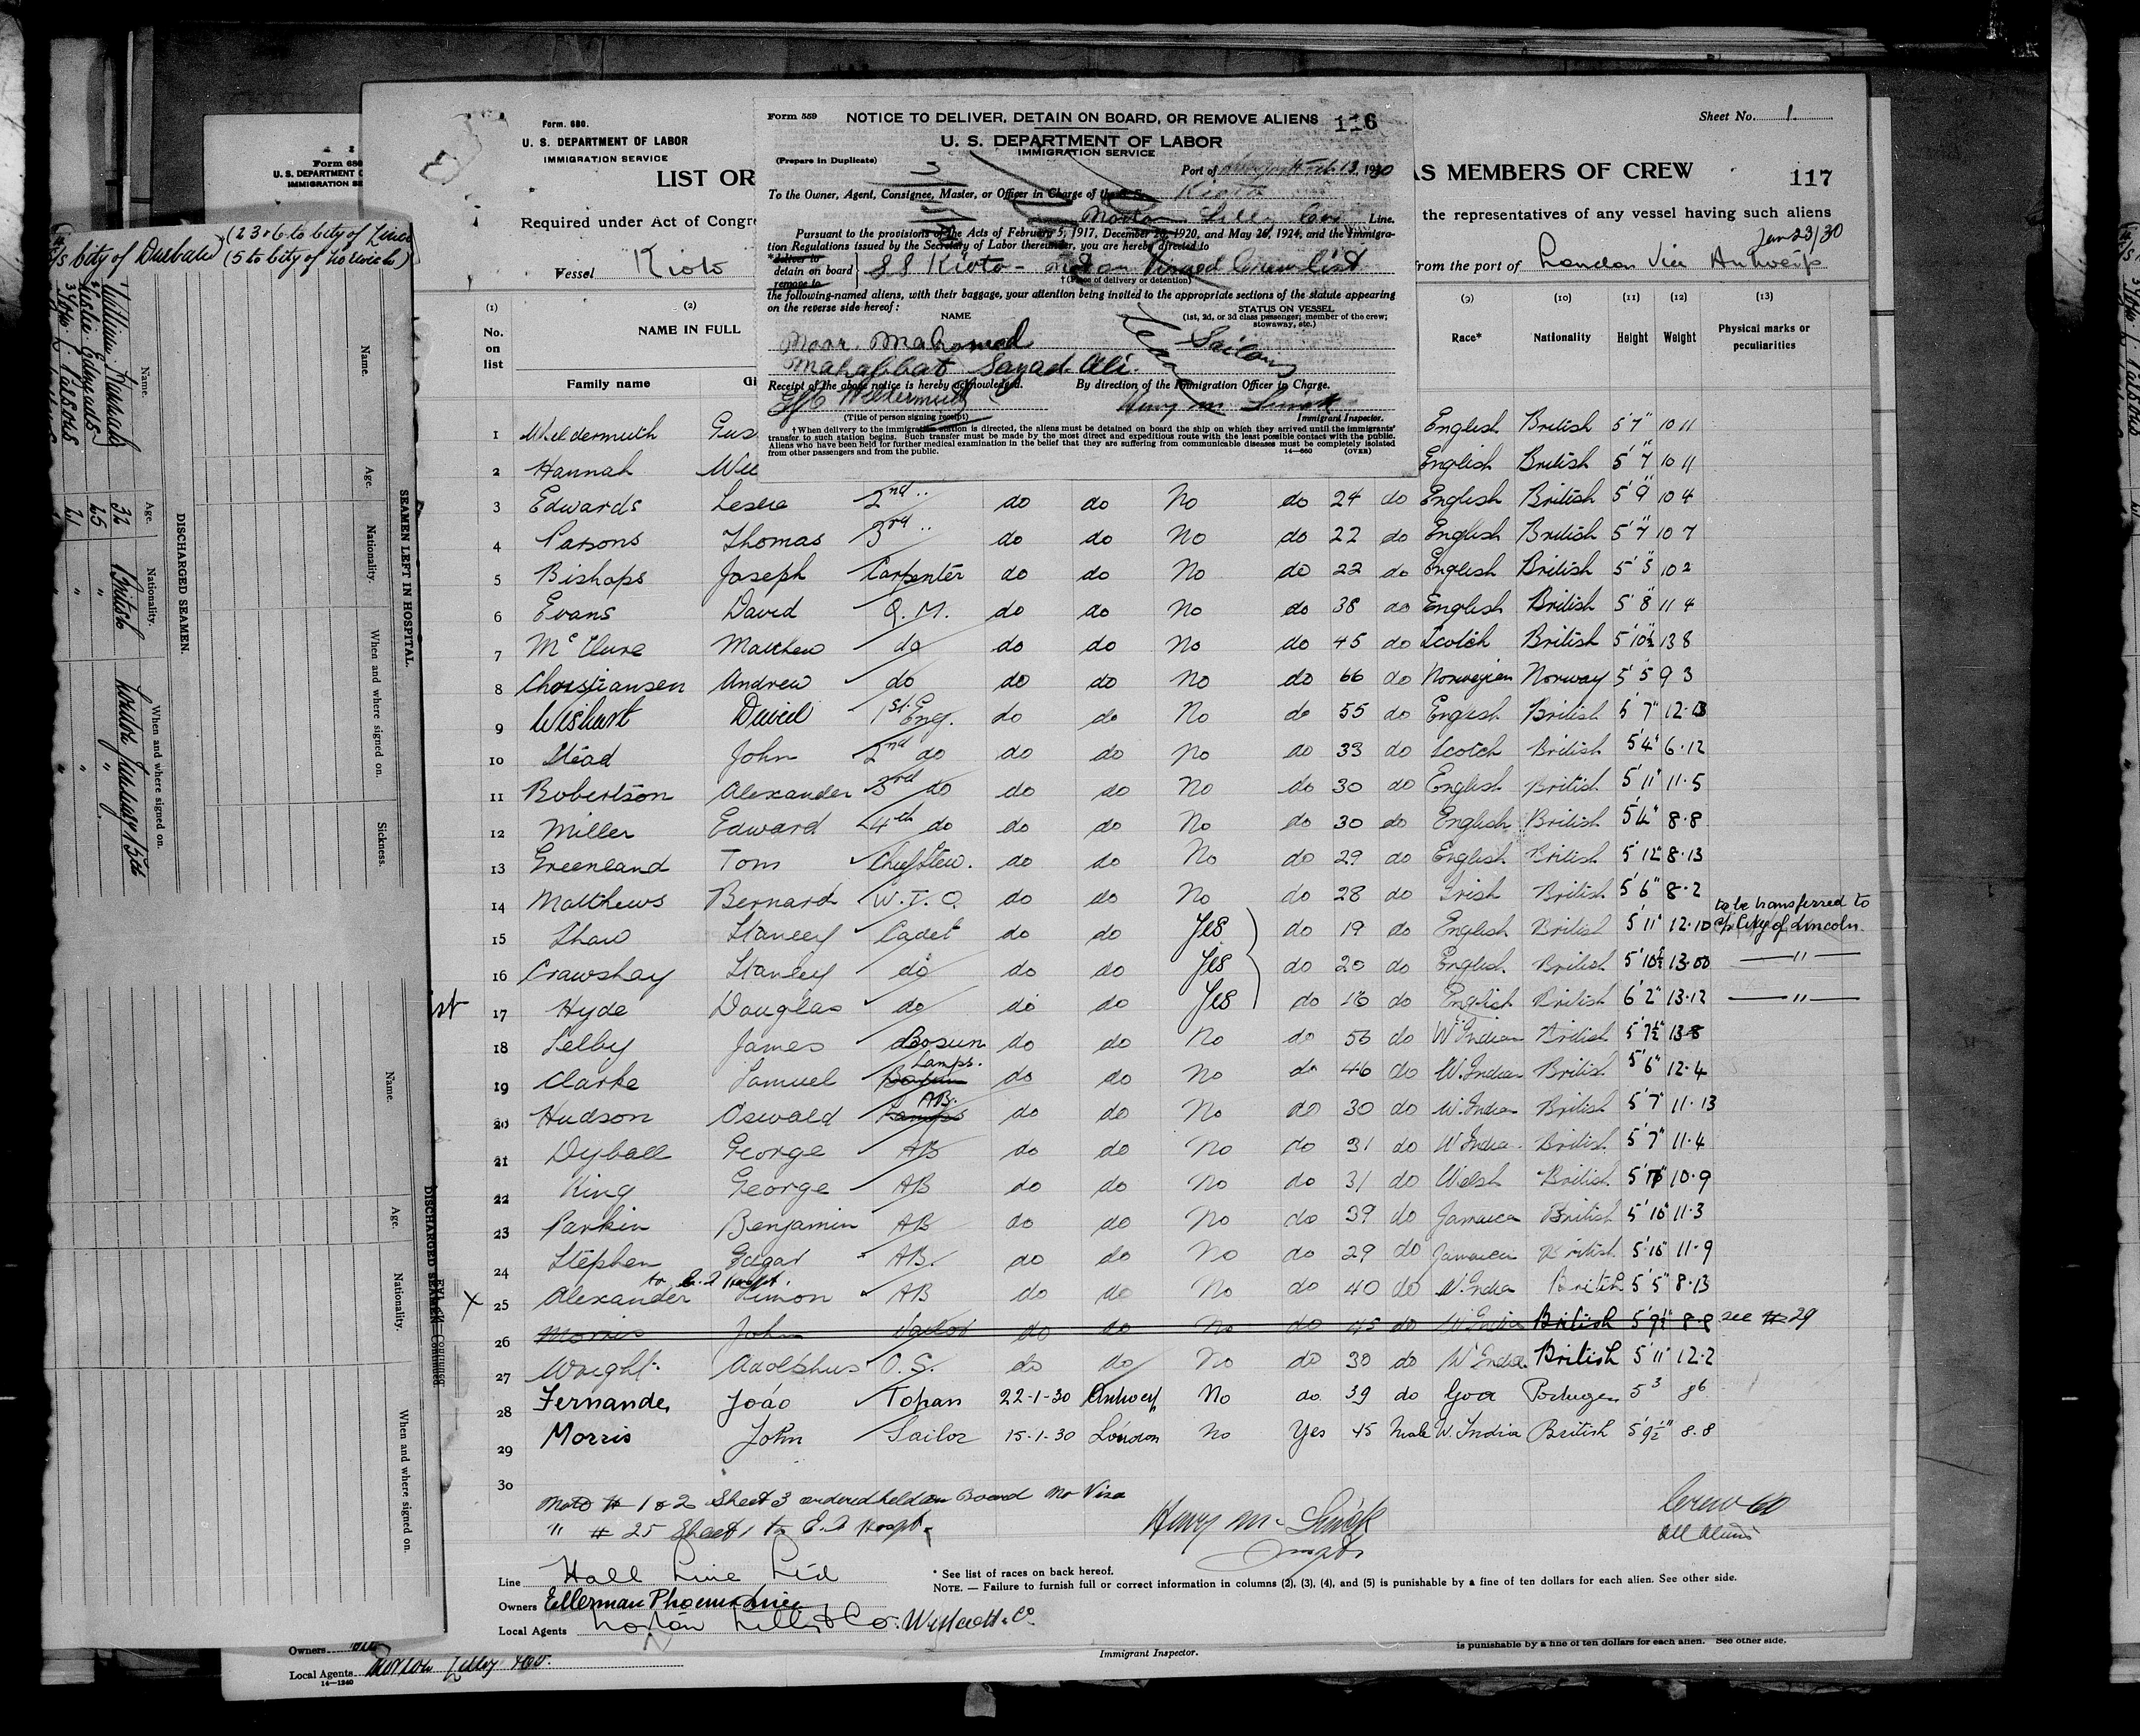 Form. 680.
U. S. DEPARTMENT OF LABOR
IMMIGRATION SERVICE
LIST OR
Required under Act of Congre
Vessel Kioto
(1) (2)
No. on list
NAME IN FULL
Family name Gi
Form 559 NOTICE TO DELIVER, DETAIN ON BOARD, OR REMOVE ALIENS 116
U. S. DEPARTMENT OF LABOR
IMMIGRATION SERVICE
(Prepare in Duplicate)
Port of Feb 13, 1930
To the Owner, Agent, Consignee, Master, or Officer in Charge of the S.S. Kioto
Norton Lilly Line.
Pursuant to the provisions of the Acts of February 5, 1917, December 26, 1920, and May 26, 1924, and the Immigra-
tion Regulations issued by the Secretary of Labor thereunder, you are hereby directed to
*deliver to
detain on board
remove to
SS Kioto - not on Visaed Crew list
†(Place of delivery or detention)
the following-named aliens, with their baggage, your attention being invited to the appropriate sections of the statute appearing
on the reverse side hereof:
NAME
STATUS ON VESSEL
(1st, 2d, or 3d class passenger; member of the crew;
stowaway, etc.)
Noor Mahomed Sailor
Mahabbat Sayad Ali.
Receipt of the above notice is hereby acknowledged. By direction of the Immigration Officer in Charge.
(Title of person signing receipt) Immigrant Inspector.
†When delivery to the immigration station is directed, the aliens must be detained on board the ship on which they arrived until the immigrants'
transfer to such station begins. Such transfer must be made by the most direct and expeditious route with the least possible contact with the public.
Aliens who have been held for further medical examination in the belief that they are suffering from communicable diseases must be completely isolated
from other passengers and from the public. 14—660 (OVER)
Sheet No. 1.
AS MEMBERS OF CREW 117
the representatives of any vessel having such aliens
Jan 23/30
from the port of London Via Antwerp
(9) (10) (11) (12) (13)
Race* Nationality Height Weight Physical marks or peculiarities
1 Wieldermuth Gus English British 5'7" 10 11
2 Hannah Will English British 5'7" 10 11
3 Edwards Leslie 2nd .. do do No do 24 do English British 5'9" 10 4
4 Parsons Thomas 3rd .. do do No do 22 do English British 5'7" 10 7
5 Bishops Joseph Carpenter do do No do 22 do English British 5'5" 10 2
6 Evans David Q.M. do do No do 38 do English British 5'8" 11 4
7 McClure Matthew do do do No do 45 do Scotch British 5'10½" 13 8
8 Christiansen Andrew do do do No do 66 do Norwegian Norway 5'5 9 3
9 Wishart David 1st Eng. do do No do 55 do English British 5'7" 12.13
10 Stead John 2nd do do do No do 33 do Scotch British 5'4" 6.12
11 Robertson Alexander 3rd do do do No do 30 do English British 5'11" 11.5
12 Miller Edward 4th do do do No do 30 do English British 5'4" 8.8
13 Greenland Tom Chief Stew. do do No do 29 do English British 5'12" 8.13
14 Matthews Bernard W.T.O. do do No do 28 do Irish British 5'6" 8.2
to be transferred to
15 Shaw Stanley Cadet do do Yes do 19 do English British 5'11" 12.10 City of Lincoln.
16 Crawshay Stanley do do do Yes do 20 do English British 5'10½" 13.00 — " —
17 Hyde Douglas do do do Yes do 16 do English British 6'2" 13.12 — " —
18 Selby James Bosun do do No do 56 do W. Indian British 5'7½" 13.8
19 Clarke Samuel Lamps. do do No do 46 do W. Indian British 5'6" 12.4
20 Hudson Oswald Lamps AB. do do No do 30 do W. India British 5'7" 11.13
21 Dyball George AB do do No do 31 do W India British 5'7" 11.4
22 King George AB do do No do 31 do Welsh British 10.9
23 Parkin Benjamin AB do do No do 39 do Jamaica British 5'10" 11.3
24 Stephen Edgar AB. do do No do 29 do Jamaica British 5'10" 11.9
to E.I Hospt.
X 25 Alexander Simon AB do do No do 40 do W. India British 5'5" 8.13
26 Morris John Sailor do do No do 45 do W India British 5'9½" 8.8 see #29
27 Wright Adolphus O.S. do do No do 30 do W India British 5'11" 12.2
28 Fernandes João Topan 22-1-30 Antwerp No do 39 do Goa Portugese 5 3 8 6
29 Morris John Sailor 15-1-30 London No Yes 45 Male W. India British 5'9½" 8.8
30
Note # 1 & 2 Sheet 3 ordered held on Board no Visa
" # 25 Sheet 1 to E.I Hospt.
Crew 60
all aliens
Line Hall Line Ltd
Owners Ellerman Phoenix Line
Local Agents Norton Lilly & Co. Westcott & Co.
* See list of races on back hereof.
NOTE.— Failure to furnish full or correct information in columns (2), (3), (4), and (5) is punishable by a fine of ten dollars for each alien. See other side.
Immigrant Inspector.
is punishable by a fine of ten dollars for each alien. See other side.
Owners
Local Agents Norton Lilly & Co.
14—1240
Form 680
U. S. DEPARTMENT O
IMMIGRATION SE
(2 3 & 6 to City of Lincoln
(5 to City of Norwich)
SEAMEN LEFT IN HOSPITAL.
Name. Age. Nationality. When and where signed on. Sickness.
DISCHARGED SEAMEN.
Name. Age. Nationality. When and where signed on.
William Hannah 32 British London January 15th
Leslie Edwards 25 " "
Parsons 21 " "
DISCHARGED SEAMEN—Continued.
Name. Age. Nationality. When and where signed on.